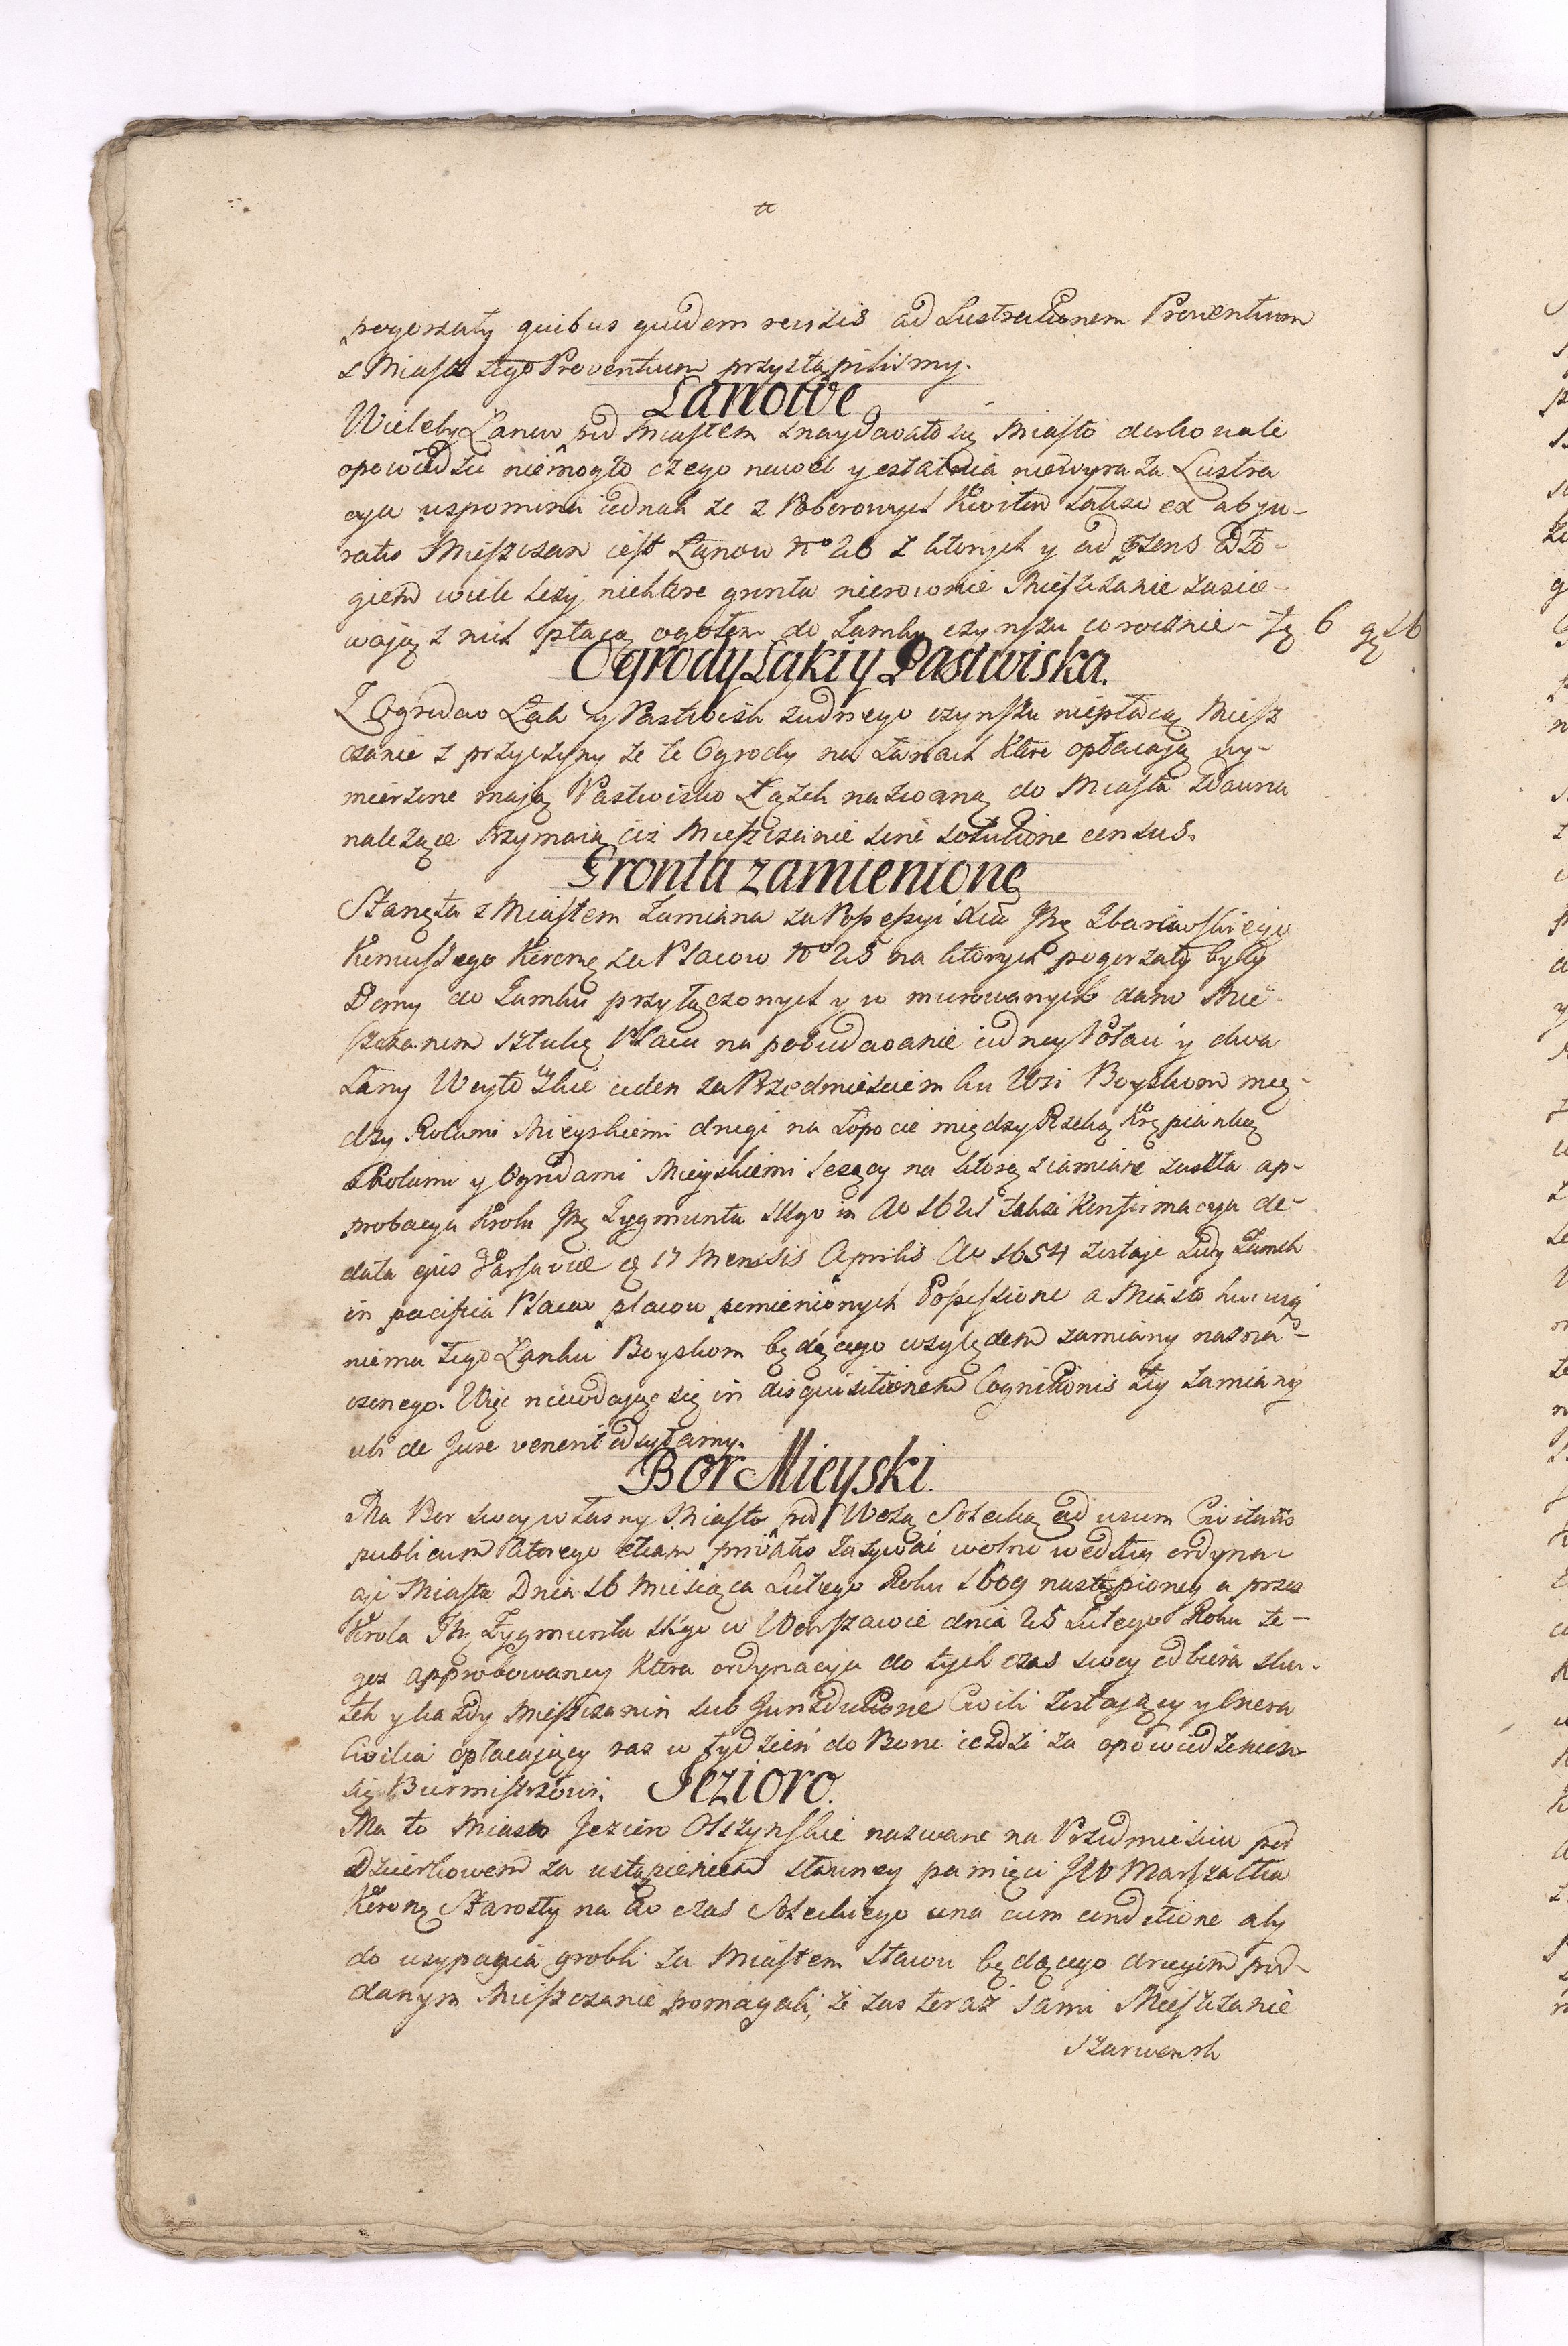 pogorzały quibus quidem revisis ad Lustrationem Proventuum
z Miasta tego Proventuum przystąpiliśmy.
Łanowe
Wieleby Łanow pod Miastem znaydowało się Miasto doskonale
opowiedzieć niemogło czego nawet y ostatnia niewyraza Lustra
cya uspomina iednak ze z Poborowych Kwitow także ex abju-
ratis Mieszczan iest Łanow No 26 z ktorych y ad præsens odło-
giem wiele lezy, niektore grunta nierownie Mieszczanie zasie-
wają z nich płacą ogołem do Zamku czynszu corocznie - 6
Ogrody Łąki y Pastwiska.
Z Ogrodow Łąk y Pastwisk zadnego czynszu niepłacą Miesz
czanie z przyczyny ze te Ogrody na Łanach ktore opłacają wy-
mierzone mają Pastwisko Łązek nazwaną do Miasta zdawna
nalezące trzymaią ciż Mieszczanie sine solutione census.
Gronta zamienione
Stanęła z Miastem Zamiana za Possessyi
Koniuszego Koronę za Placow No 25 na ktorych pogorzały były
Domy do Zamku przyłączonych y w murowanych dano Mie-
szczanom sztukę Placu na pobudowanie iedney Połaci y dwa
Łany Woytowskie ieden za Przedmiesciem ku Wsi Boyskom mię-
dzy Rolami Mieyskiemi drugi na Łopocie między Rzeką Krępianką
a Rolami y Ogrodami Mieyskiemi lezący na ktorą zamianę zaszła ap-
probacya Krola Zygmunta IIIgo in Ao 1621 także Konfirmacya de
data ejus Varsaviæ 17 Mensis Aprilis Ao 1654 zostaje tedy Zamek
in pacifica Placow placow pomienionych Possessione a Miasto
niema tego Łanku Boyskom będącego względem zamiany nazna-
czonego. Więc niewdając się in disquisitionem Cognitionis tey zamiany
ubi de Jure venerit odsyłamy.
Bor Mieyski.
Ma Bor swoy własny Miasto pod Wolą Solecką ad usum Civitatis
publicum ktorego etiam privatis zazywać wolno według ordyna-
cyi Miasta Dnia 16 Miesiąca Lutego Roku 1609 nastąpioney a przez
Krola Zygmunta IIIgo w Warszawie dnia 25 Lutego Roku te-
goz approbowaney ktora ordynacya do tych czas swoy odbiera sku-
tek y kazdy Mieszczanin sub Jurisdictione Civili zostający y Onera
Civilia opłacający raz w tydzień do Boru iezdzi za opowiedzeniem
się Burmistrzowi. Jezioro.
Ma to Miasto Jezioro Olszynskie nazwane na Przedmiesciu pod
Dziurkowem za ustąpieniem sławney pamięci JW Marszałka
Koronę Starosty na ten czas Soleckiego una cum conditione aby
do usypania grobli za Miastem Stawu będącego drugim pod-
danym Mieszczanie pomagali, ze zas teraz sami Mieszczanie
Szarwark